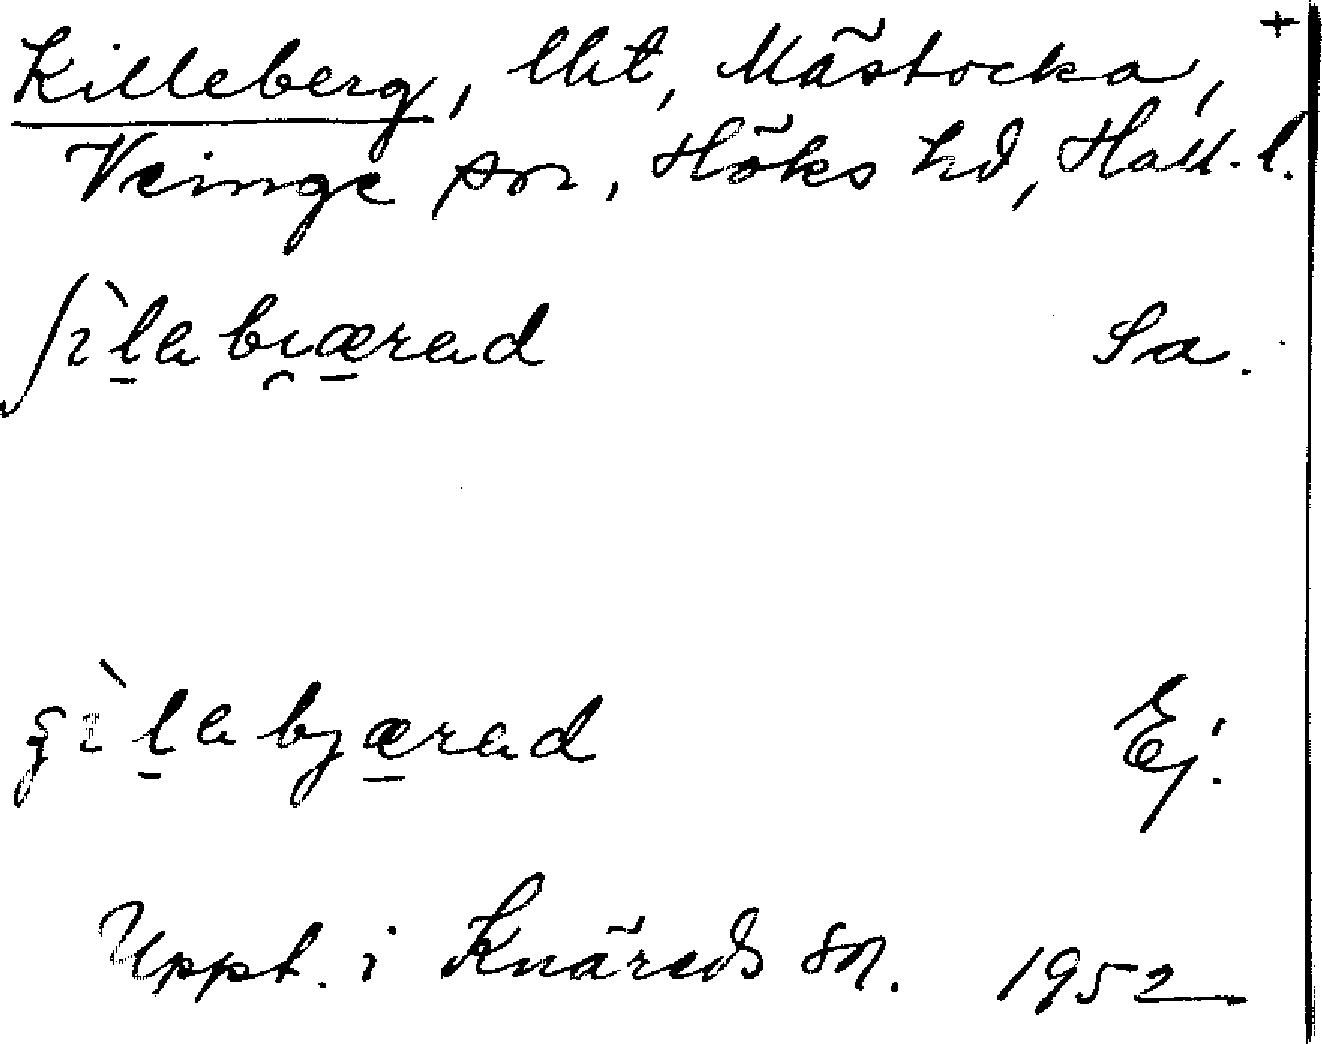 +
Killeberg, lht, Mästocka,
Veinge sn, Höks hd, Hall. l.
ʃɪ̀l̠abi̯æ̠rad Sa.
ʂɪ̀l̠abjæ̠rad Ej.
Uppt. i Knäreds sn. 1952